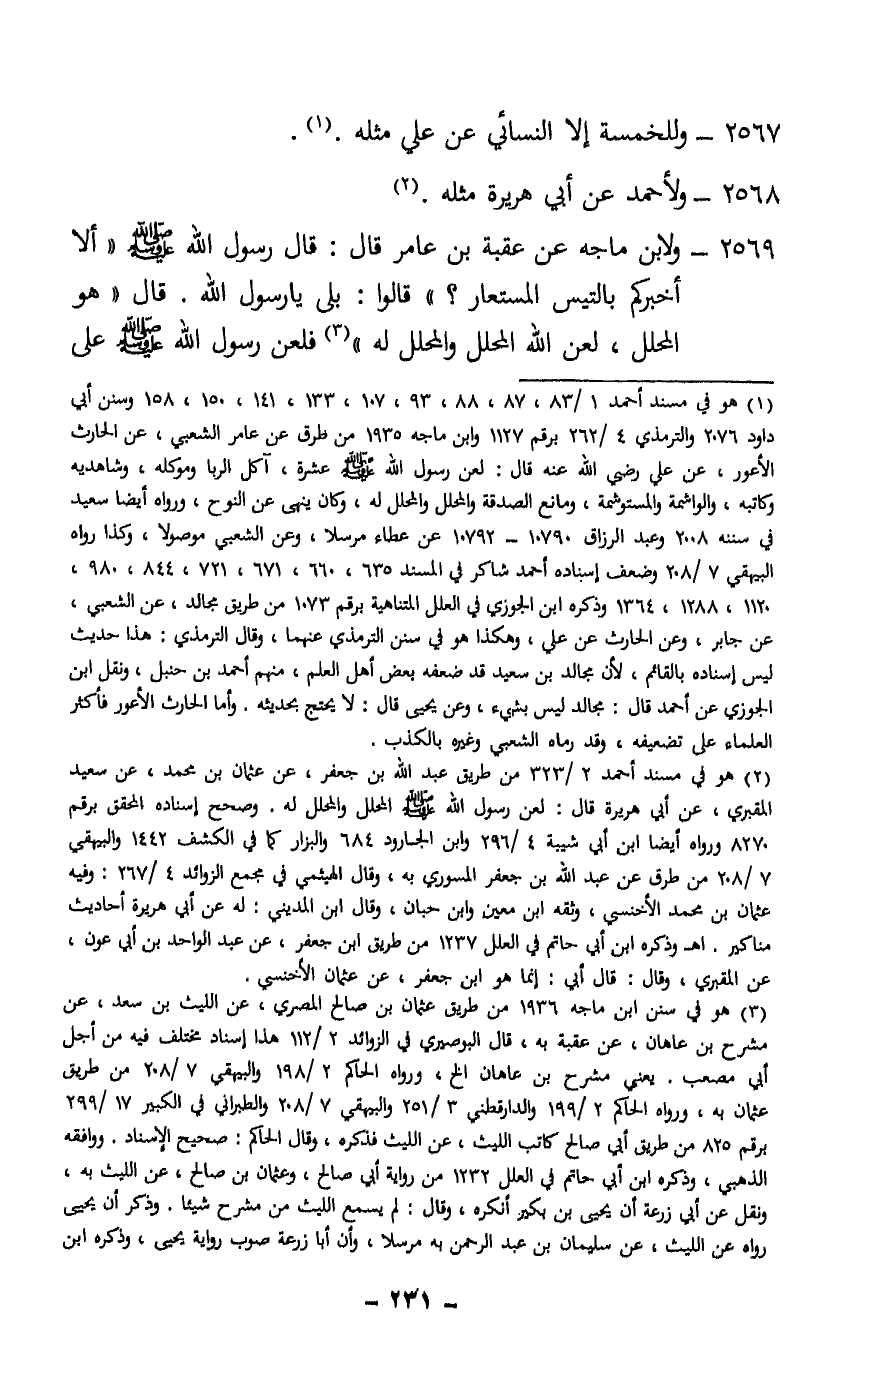 ٢٥٦٧ – وللخمسة إلا النسائي عن علي مثله .(١) .
٢٥٦٨ – ولأحمد عن أبي هريرة مثله .(٢)
٢٥٦٩ – ولابن ماجه عن عقبة بن عامر قال : قال رسول الله ﷺ « ألا
أخبركم بالتيس المستعار ؟ » قالوا : بلى يارسول الله . قال « هو
المحلل ، لعن الله المحلل والمحلل له »(٣) فلعن رسول الله ﷺ على
(١) هو في مسند أحمد ١ /٨٣ ، ٨٧ ، ٨٨ ، ٩٣ ، ١٠٧ ، ١٣٣ ، ١٤١ ، ١٥٠ ، ١٥٨ وسنن أبي
داود ٢٠٧٦ والترمذي ٤ /٢٦٢ برقم ١١٢٧ وابن ماجه ١٩٣٥ من طرق عن عامر الشعبي ، عن الحارث
الأعور ، عن علي رضي الله عنه قال : لعن رسول الله ﷺ عشرة ، آكل الربا وموكله ، وشاهديه
وكاتبه ، والواشمة والمستوشمة ، ومانع الصدقة والمحلل والمحلل له ، وكان ينهى عن النوح ، ورواه أيضا سعيد
في سننه ٢٠٠٨ وعبد الرزاق ١٠٧٩٠ – ١٠٧٩٢ عن عطاء مرسلا ، وعن الشعبي موصولا ، وكذا رواه
البيهقي ٧ /٢٠٨ وضعف إسناده أحمد شاكر في المسند ٦٣٥ ، ٦٦٠ ، ٦٧١ ، ٧٢١ ، ٨٤٤ ، ٩٨٠ ،
١١٢٠ ، ١٢٨٨ ، ١٣٦٤ وذكره ابن الجوزي في العلل المتناهية برقم ١٠٧٣ من طريق مجالد ، عن الشعبي ،
عن جابر ، وعن الحارث عن علي ، وهكذا هو في سنن الترمذي عنهما ، وقال الترمذي : هذا حديث
ليس إسناده بالقائم ، لأن مجالد بن سعيد قد ضعفه بعض أهل العلم ، منهم أحمد بن حنبل ، ونقل ابن
الجوزي عن أحمد قال : مجالد ليس بشيء ، وعن يحيى قال : لا يحتج بحديثه . وأما الحارث الأعور فأكثر
العلماء على تضعيفه ، وقد رماه الشعبي وغيره بالكذب .
(٢) هو في مسند أحمد ٢ /٣٢٣ من طريق عبد الله بن جعفر ، عن عثمان بن محمد ، عن سعيد
المقبري ، عن أبي هريرة قال : لعن رسول الله ﷺ المحلل والمحلل له . وصحح إسناده المحقق برقم
٨٢٧٠ ورواه أيضا ابن أبي شيبة ٤ /٢٩٦ وابن الجارود ٦٨٤ والبزار كما في الكشف ١٤٤٢ والبيهقي
٧ /٢٠٨ من طرق عن عبد الله بن جعفر المسوري به ، وقال الهيثمي في مجمع الزوائد ٤ /٢٦٧ : وفيه
عثمان بن محمد الأخنسي ، وثقه ابن معين وابن حبان ، وقال ابن المديني : له عن أبي هريرة أحاديث
مناكير . اهـ وذكره ابن أبي حاتم في العلل ١٢٣٧ من طريق ابن جعفر ، عن عبد الواحد بن أبي عون ،
عن المقبري ، وقال : قال أبي : إنما هو ابن جعفر ، عن عثمان الأخنسي .
(٣) هو في سنن ابن ماجه ١٩٣٦ من طريق عثمان بن صالح المصري ، عن الليث بن سعد ، عن
مشرح بن عاهان ، عن عقبة به ، قال البوصيري في الزوائد ٢ /١١٢ هذا إسناد مختلف فيه من أجل
أبي مصعب . يعني مشرح بن عاهان الخ ، ورواه الحاكم ٢ /١٩٨ والبيهقي ٧ /٢٠٨ من طريق
عثمان به ، ورواه الحاكم ٢ /١٩٩ والدارقطني ٣ /٢٥١ والبيهقي ٧ /٢٠٨ والطبراني في الكبير ١٧ /٢٩٩
برقم ٨٢٥ من طريق أبي صالح كاتب الليث ، عن الليث فذكره ، وقال الحاكم : صحيح الإسناد . ووافقه
الذهبي ، وذكره ابن أبي حاتم في العلل ١٢٣٢ من رواية أبي صالح ، وعثمان بن صالح ، عن الليث به ،
ونقل عن أبي زرعة أن يحيى بن بكير أنكره ، وقال : لم يسمع الليث من مشرح شيئا . وذكر أن يحيى
رواه عن الليث ، عن سليمان بن عبد الرحمن به مرسلا ، وأن أبا زرعة صوب رواية يحيى ، وذكره ابن
– ٢٣١ –